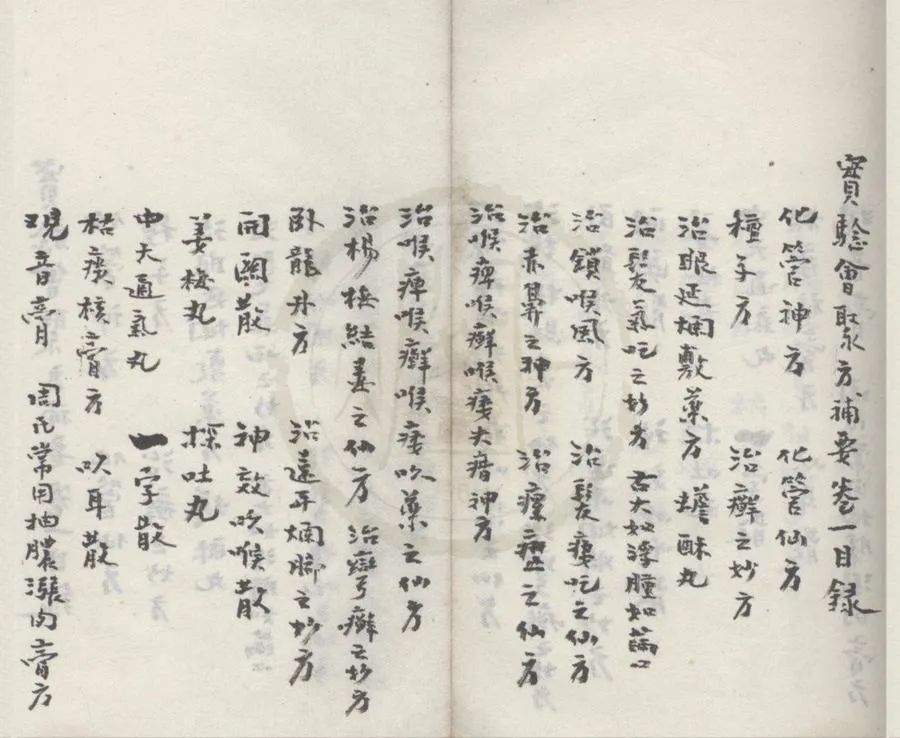 實驗會聚方補要卷一目錄
化管神方　化管仙方
種子方　治癬之妙方
治眼延爛敷藥方　蟾酥丸
治髮氣吃之妙方　舌大如浮腫如菌
治鎖喉風方　治髮瘻吃之仙方
治赤鼻之神方　治瘰癧之仙方
治喉痺喉癬喉痿大瘖神方
治喉痺喉癬喉痿吹藥之仙方
治楊梅結毒之仙方　治癬之妙方
臥龍丹方　治遠年爛腳之妙方
開關散　神效吹喉散
姜梅丸　探吐丸
中天通氣丸　一字散
枯瘰核膏方　吹耳散
膏　周氏常用抽膿漲肉膏方